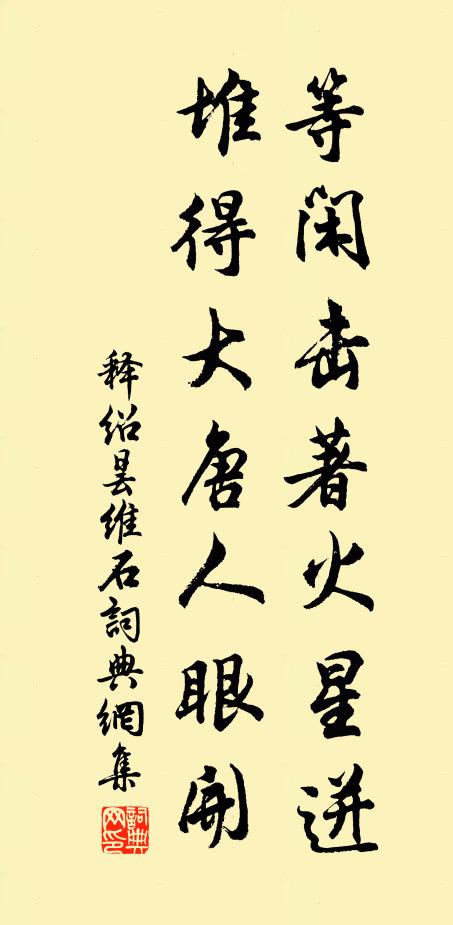 等闲击著火星迸
堆得大唐人眼开
释绍昙维石詞典網集
詞典网印